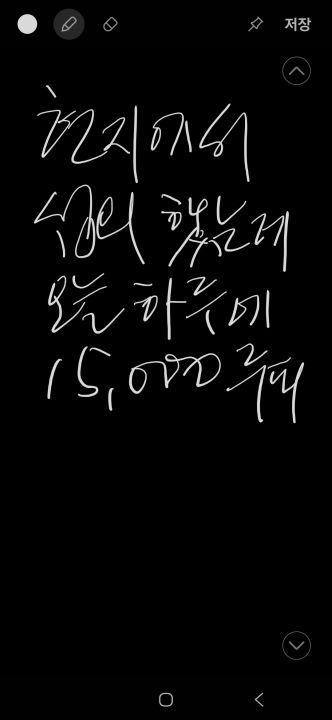 저장
현지에서
섭외 했는데
오늘 하루에
15,000 루피